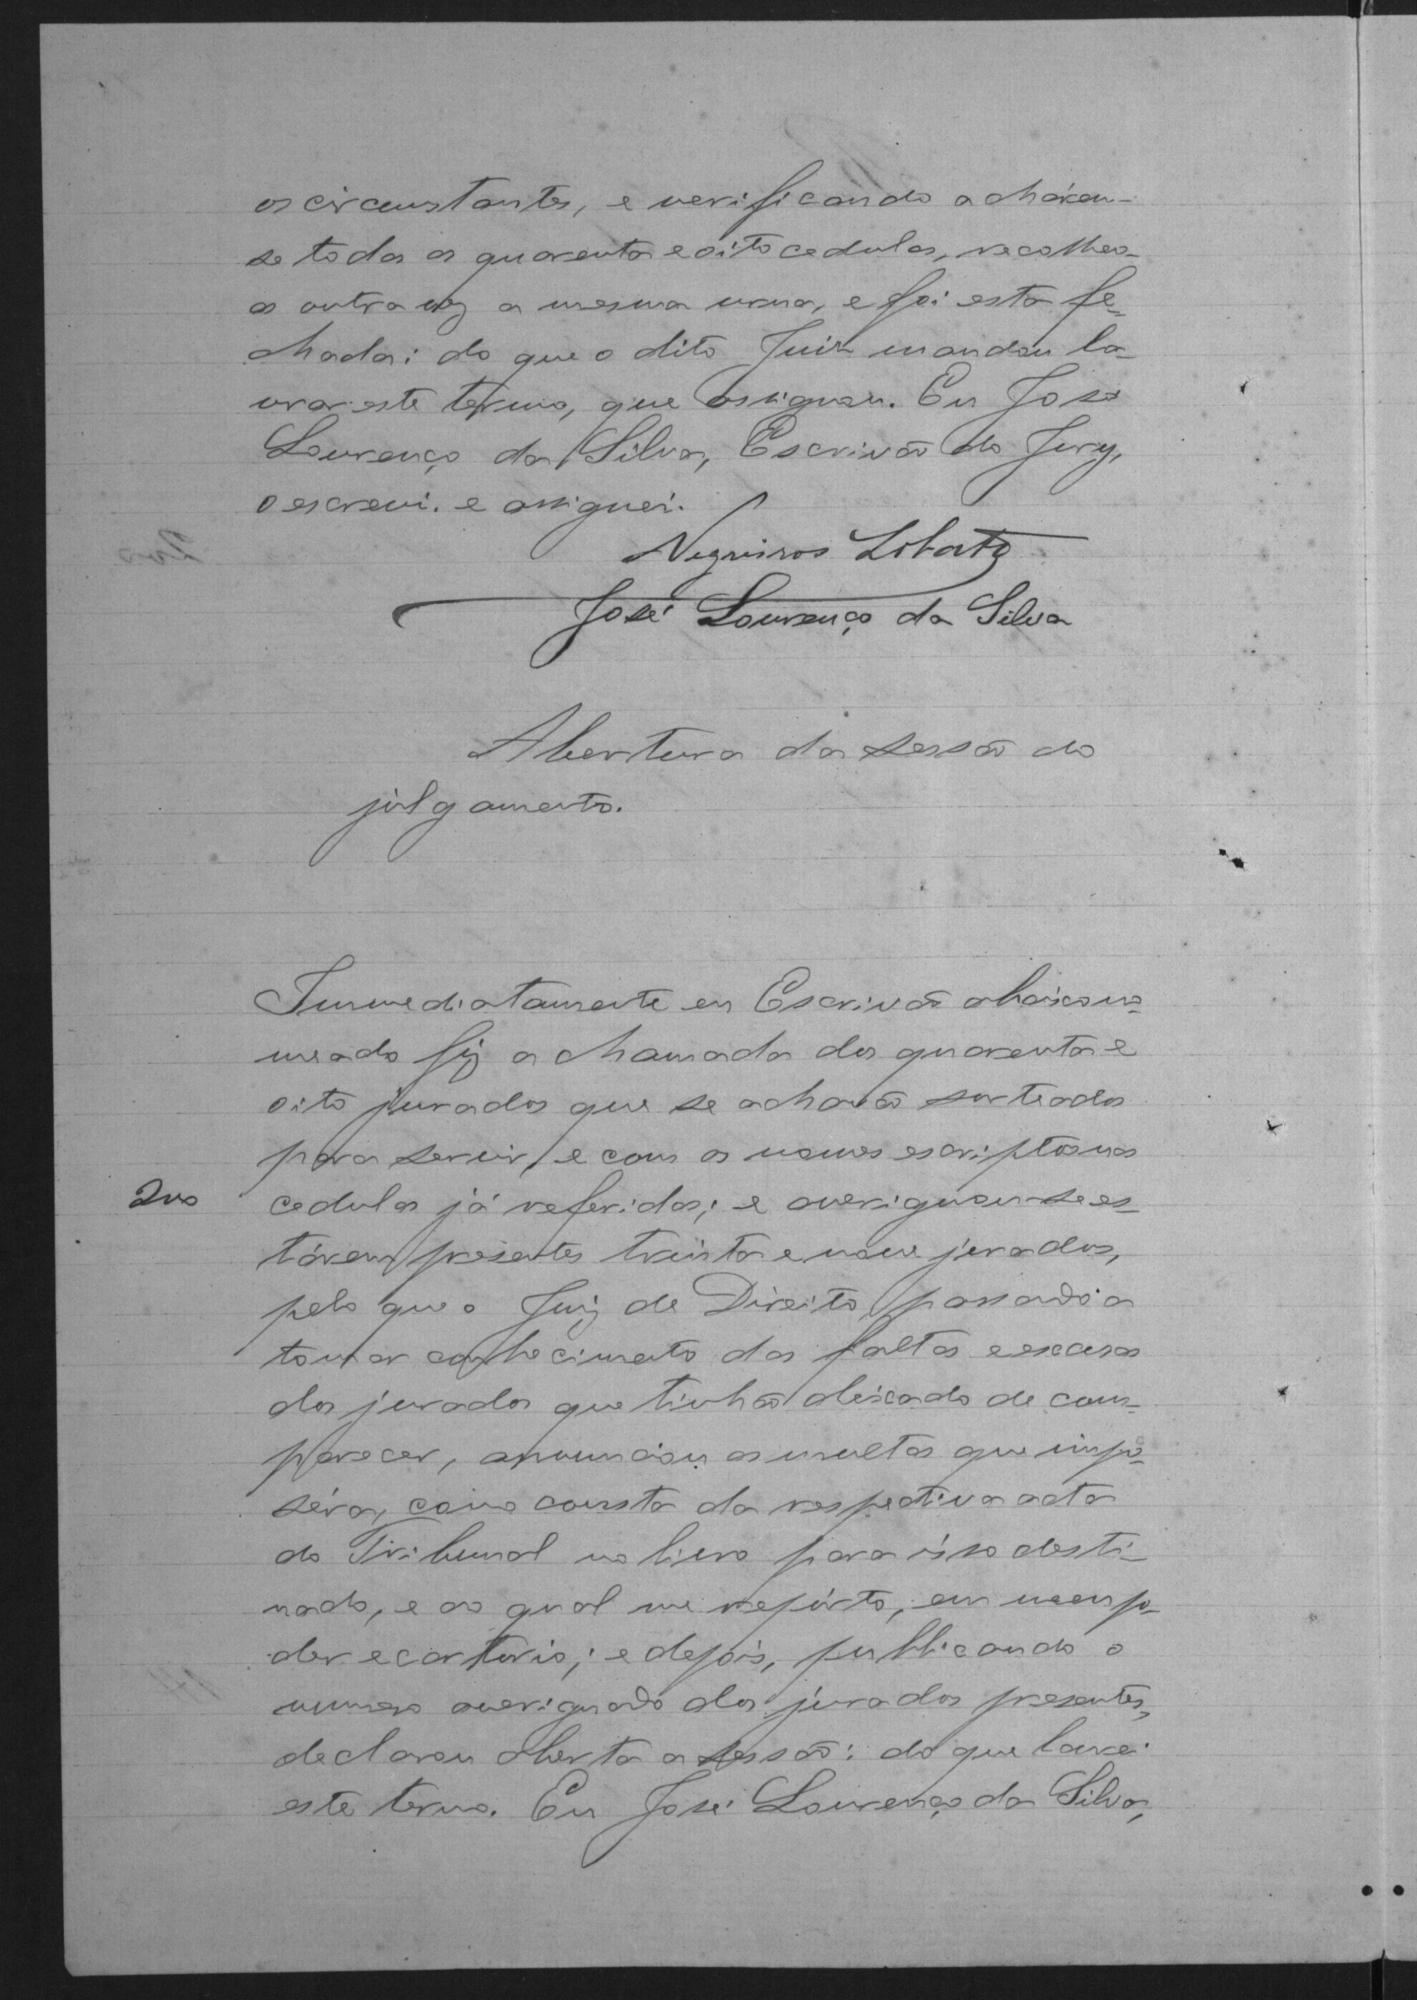 os circunstantes, e verificando achárem-
se todas as quarenta e oito cedulas, recolheo-
as outra vez a mesma urna, e foi esta fe-
chada: do que o dito Juiz mandou la-
vrar este termo, que assignou. Eu José
Lourenço da Silva, Escrivão do Jury,
o escrevi. e assignei.
Negreiros Lobato
José Lourenço da Silva
Abertura da sessão do
julgamento.
Immediatamente eu Escrivão abaixo no-
meado fiz a chamada dos quarenta e
oito jurados que se achavão sorteados
para servir, e com os nomes escriptos nas
cedulas já referidas; e averiguou-se es-
tárem presentes trinta e nove jurados,
pelo que o Juiz de Direito, passando a
tomar conhecimento das faltas e escusas
dos jurados que tinhão deixado de com-
parecer, anunciou as multas que impo-
séra, como consta da respectiva acta
do Tribunal no livro para isso desti-
nado, e ao qual me repórto, em meu po-
der e cartorio; e depois, publicando o
numero averiguado dos jurados presentes,
declarou aberta a sessão: do que lavrei
este termo. Eu José Lourenço da Silva,